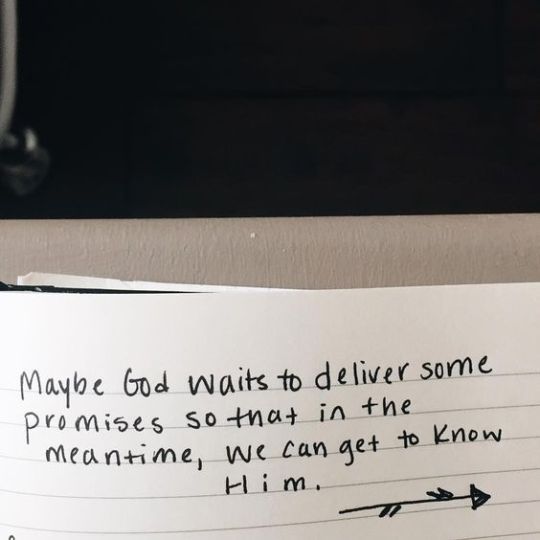 Maybe God waits to deliver some
promises so that in the
meantime, we can get to know
Him.